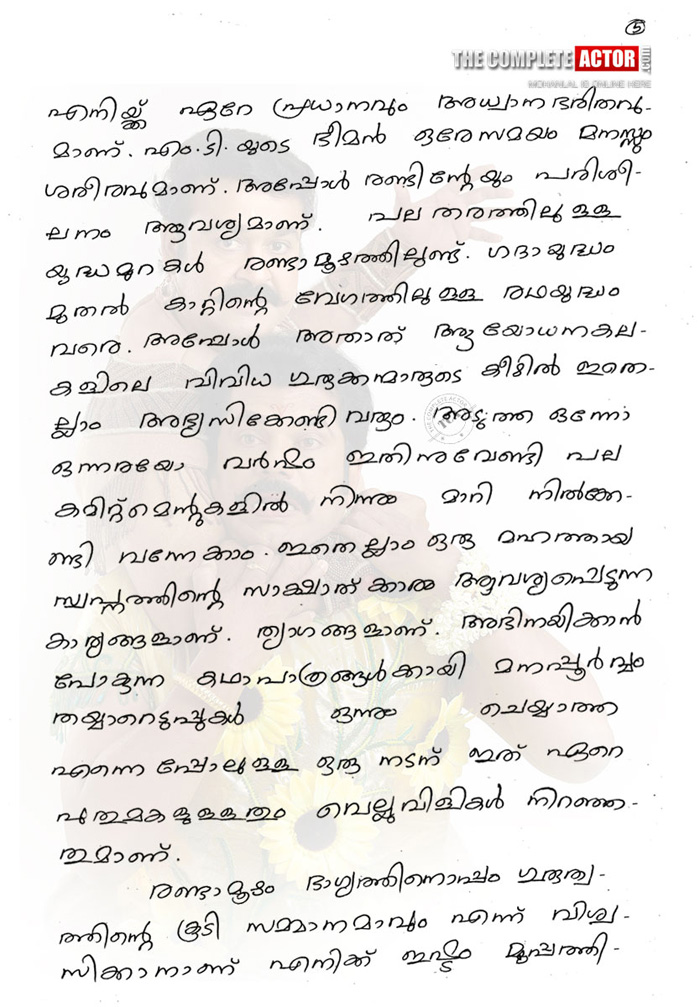 5
THE COMPLETE ACTOR.com
MOHANLAL IS ONLINE HERE
എനിയ്ക്ക് ഏറേ പ്രധാനവും അധ്വാനഭരിതവു-
മാണ്. എം.ടി.യുടെ ഭീമൻ ഒരേസമയം മനസ്സും
ശരീരവുമാണ്. അപ്പോൾ രണ്ടിന്റേയും പരിശീ-
ലനം ആവശ്യമാണ്. പല തരത്തിലുള്ള
യുദ്ധമുറകൾ രണ്ടാമൂഴത്തിലുണ്ട്. ഗദായുദ്ധം
മുതൽ കാറ്റിന്റെ വേഗത്തിലുള്ള രഥയുദ്ധം
വരെ. അപ്പോൾ അതാത് ആയോധനകല-
കളിലെ വിവിധ ഗുരുക്കന്മാരുടെ കീഴിൽ ഇതെ-
ല്ലാം അഭ്യസിക്കേണ്ടിവരും. അടുത്ത ഒന്നോ
ഒന്നരയോ വർഷം ഇതിനുവേണ്ടി പല
കമിറ്റ്മെന്റുകളിൽ നിന്നും മാറി നിൽക്കേ-
ണ്ടി വന്നേക്കാം. ഇതെല്ലാം ഒരു മഹത്തായ
സ്വപ്നത്തിന്റെ സാക്ഷാത്കാരം ആവശ്യപ്പെടുന്ന
കാര്യങ്ങളാണ്. ത്യാഗങ്ങളാണ്. അഭിനയിക്കാൻ
പോകുന്ന കഥാപാത്രങ്ങൾക്കായി മനപ്പൂർവ്വം
തയ്യാറെടുപ്പുകൾ ഒന്നും ചെയ്യാത്ത
എന്നെപ്പോലുള്ള ഒരു നടന് ഇത് ഏറെ
പുതുമകളുള്ളതും വെല്ലുവിളികൾ നിറഞ്ഞ-
തുമാണ്.
രണ്ടാമൂഴം ഭാഗ്യത്തിനൊപ്പം ഗുരുത്വ-
ത്തിന്റെ കൂടി സമ്മാനമാവും എന്ന് വിശ്വ-
സിക്കാനാണ് എനിക്ക് ഇഷ്ടം മുപ്പത്തി-